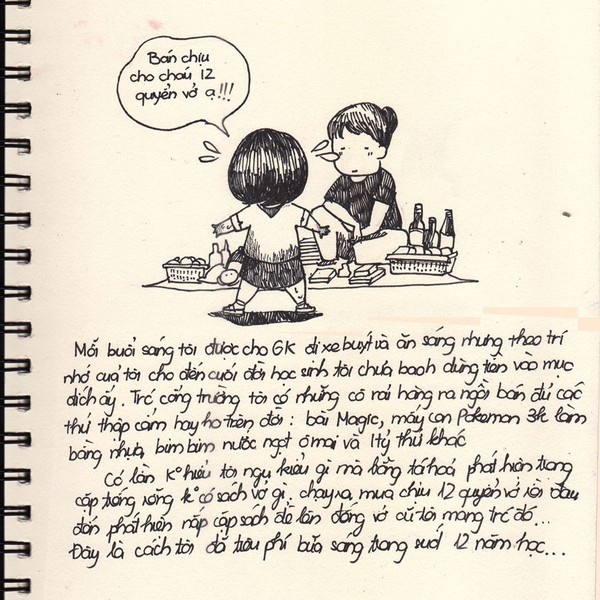 Bán chịu
cho cháu 12
quyển vở ạ!!!
Mỗi buổi sáng tôi được cho 6K đi xe buýt và ăn sáng nhưng theo trí
nhớ của tôi cho đến cuối đời học sinh tôi chưa baoh dùng tiền vào mục
đích ấy. Trc cổng trường tôi có những cô rải hàng ra ngồi bán đủ các
thứ thập cẩm hay ho trên đời: bài Magic, mấy con Pokemon 3k làm
bằng nhựa, bim bim nước ngọt ô mai và 1 tỷ thứ khác
Có lần k° hiểu tôi ngu kiểu gì mà bỗng tá hoả phát hiện trong
cặp trống rỗng k° có sách vở gì. chạy ra, mua chịu 12 quyển vở rồi đau
đớn phát hiện nắp cặp sách đè lên đống vở cũ tôi mang trc đó...
Đây là cách tôi đã tiêu phí bữa sáng trong suốt 12 năm học...